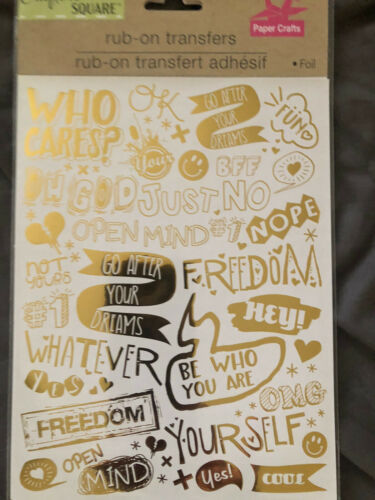 SQUARE™
Paper Crafts
rub-on transfers
rub-on transfert adhésif
• Foil
WHO
CARES?
OK
GO AFTER
YOUR
DREAMS
FUN
Your
BFF
OH GOD JUST NO
OPEN MIND #1 NOPE
not
yours
GO AFTER
YOUR
DREAMS
FREEDOM
#1
HEY!
WHATEVER
BE WHO
YOU ARE
YES
OMG
FREEDOM
YOURSELF
OPEN
MIND
Yes!
COOL